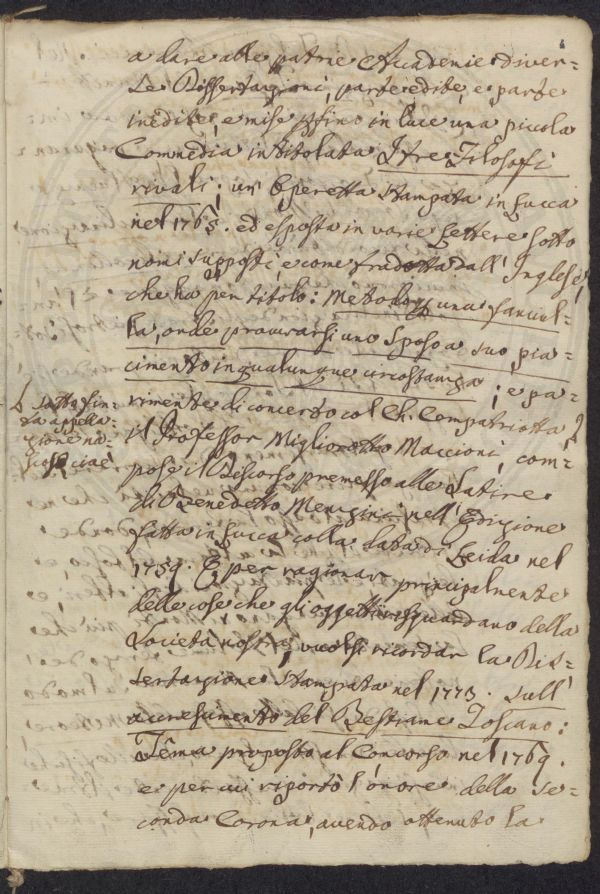 a dare alle patrie Accademie diver=
se Dissertazioni, parte edite, e parte
inedite, e mise persino in luce una piccola
Commedia intitolata I tre Filosofi
rivali; un' Operetta stampata in Lucca
nel 1765. ed esposta in varie Lettere sotto
nomi supposti, e come tradotta dall' Inglese,
che ha per titolo: Metodo per una fanciul=
la, onde procurarsi uno Sposo a suo pia=
cimento in qualunque circostanza; e pa=
rimente di concerto col Ch. Compatriotta
sotto fin=
ta appella=
zione na=
scosti, cioè
il Professor Miglioretto Maccioni, com=
pose il Discorso premesso alle Satire
di Benedetto Menzini nell' Edizione
fatta in Lucca colla data di Leida nel
1759. E per ragionar principalmente
delle cose che gli oggetti risguardano della
Società nostra, vuolsi ricordar la Dis=
sertazione stampata nel 1773. sull'
accrescimento del Bestiame Toscano:
Tema proposto al Concorso nel 1769.
e per cui riportò l'onore della se=
conda Corona, avendo ottenuto la